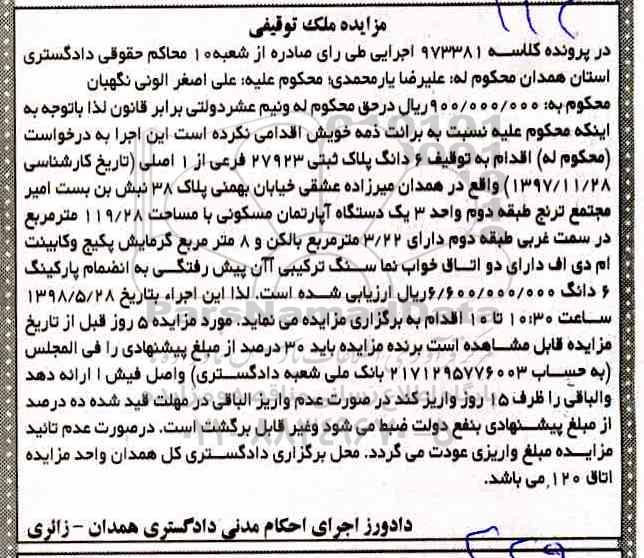 مزایده ملک توقیفی
در پرونده کلاسه ۹۷۳۳۸۱ اجرایی طی رای صادره از شعبه۱۰ محاکم حقوقی دادگستری
استان همدان محکوم له: علیرضا یارمحمدی؛ محکوم علیه: علی اصغر الونی نگهبان
محکوم به: ۹۰۰/۰۰۰/۰۰۰ریال درحق محکوم له ونیم عشردولتی برابر قانون لذا باتوجه به
اینکه محکوم علیه نسبت به برائت ذمه خویش اقدامی نکرده است این اجرا به درخواست
(محکوم له) اقدام به توقیف ۶ دانگ پلاک ثبتی ۲۷۹۲۳ فرعی از ۱ اصلی (تاریخ کارشناسی
۱۳۹۷/۱۱/۲۸) واقع در همدان میرزاده عشقی خیابان بهمنی پلاک ۳۸ نبش بن بست امیر
مجتمع ترنج طبقه دوم واحد ۳ یک دستگاه آپارتمان مسکونی با مساحت ۱۱۹/۲۸ مترمربع
در سمت غربی طبقه دوم دارای ۳/۲۲ مترمربع بالکن و ۸ متر مربع گرمایش پکیج وکابینت
ام دی اف دارای دو اتاق خواب نما سنگ ترکیبی آآن پیش رفتگی به انضمام پارکینگ
۶ دانگ ۶/۶۰۰/۰۰۰/۰۰۰ریال ارزیابی شده است. لذا این اجراء بتاریخ ۱۳۹۸/۵/۲۸
ساعت ۱۰:۳۰ تا ۱۰ اقدام به برگزاری مزایده می نماید. مورد مزایده ۵ روز قبل از تاریخ
مزایده قابل مشاهده است برنده مزایده باید ۳۰ درصد از مبلغ پیشنهادی را فی المجلس
(به حساب ۲۱۷۱۲۹۵۷۷۶۰۰۳ بانک ملی شعبه دادگستری) واصل فیش ا ارائه دهد
والباقی را ظرف ۱۵ روز واریز کند در صورت عدم واریز الباقی در مهلت قید شده ده درصد
از مبلغ پیشنهادی بنفع دولت ضبط می شود وغیر قابل برگشت است. درصورت عدم تائید
مزایده مبلغ واریزی عودت می گردد. محل برگزاری دادگستری کل همدان واحد مزایده
اتاق ۱۲۰ می باشد.
دادورز اجرای احکام مدنی دادگستری همدان - زائری